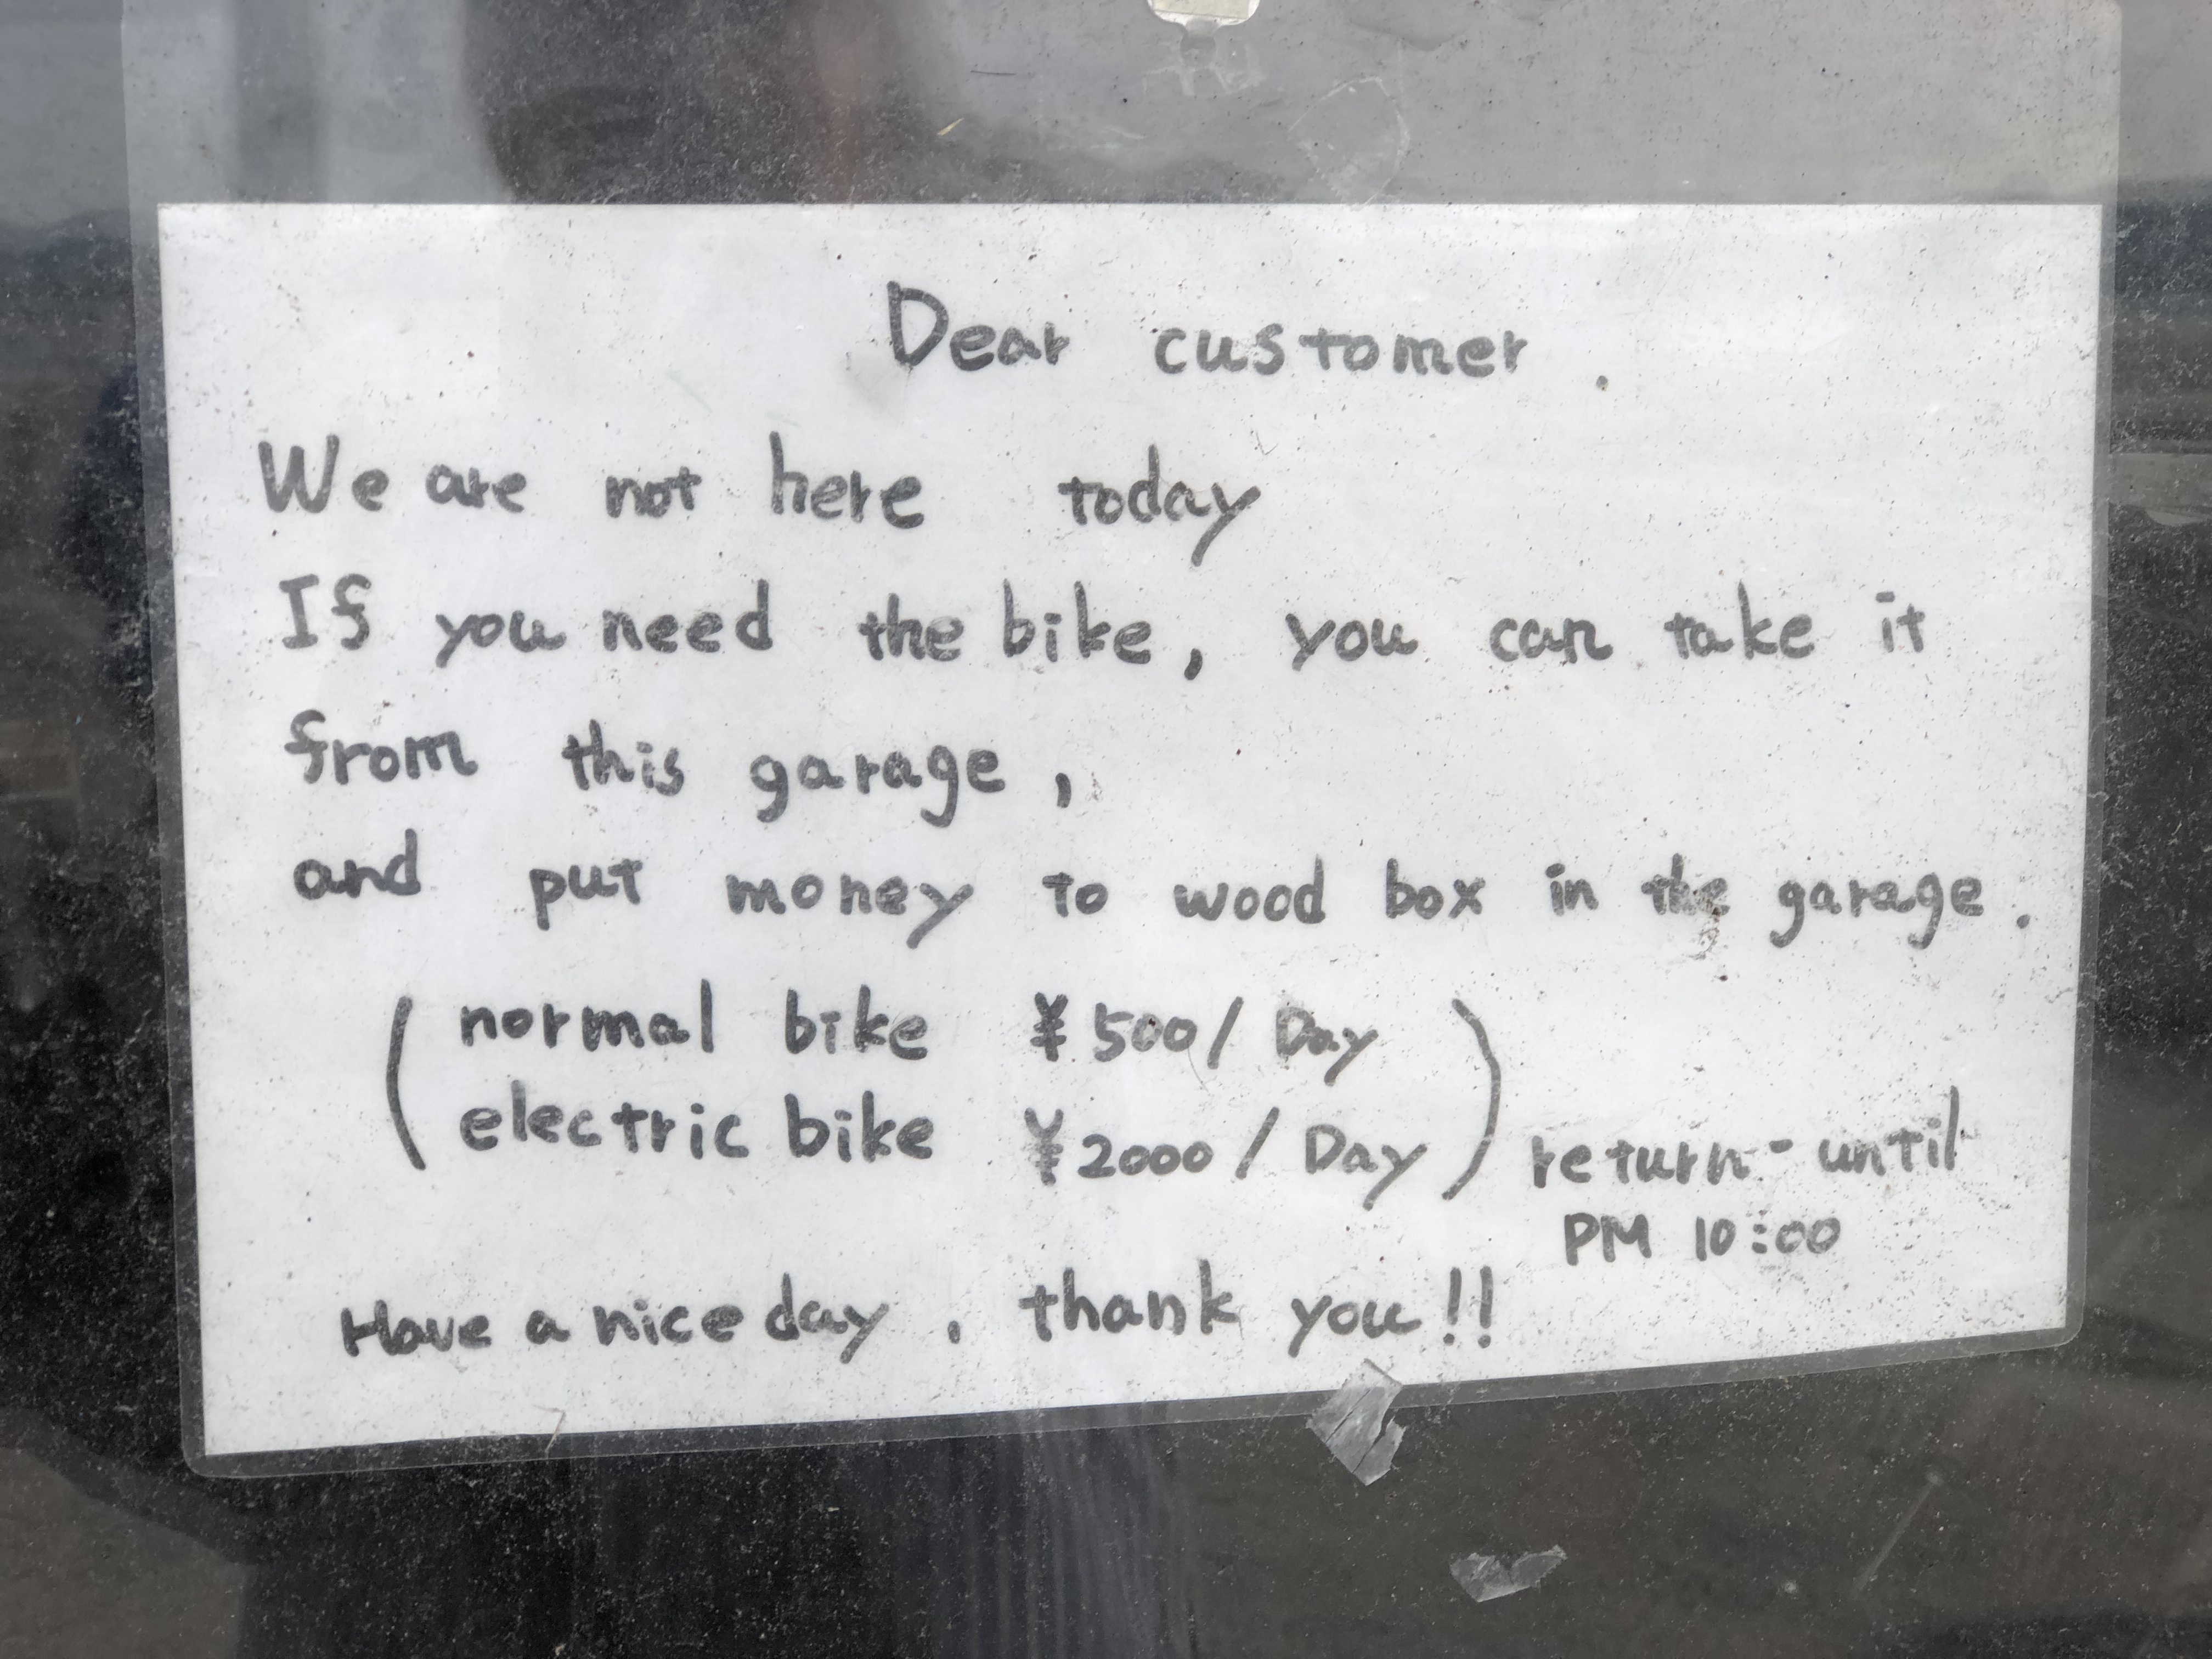 Dear customer.
We are not here today
If you need the bike, you can take it
from this garage,
and put money to wood box in the garage.
( normal bike ¥500/ Day
electric bike ¥2000/ Day ) return - until
PM 10:00
Have a nice day, thank you!!